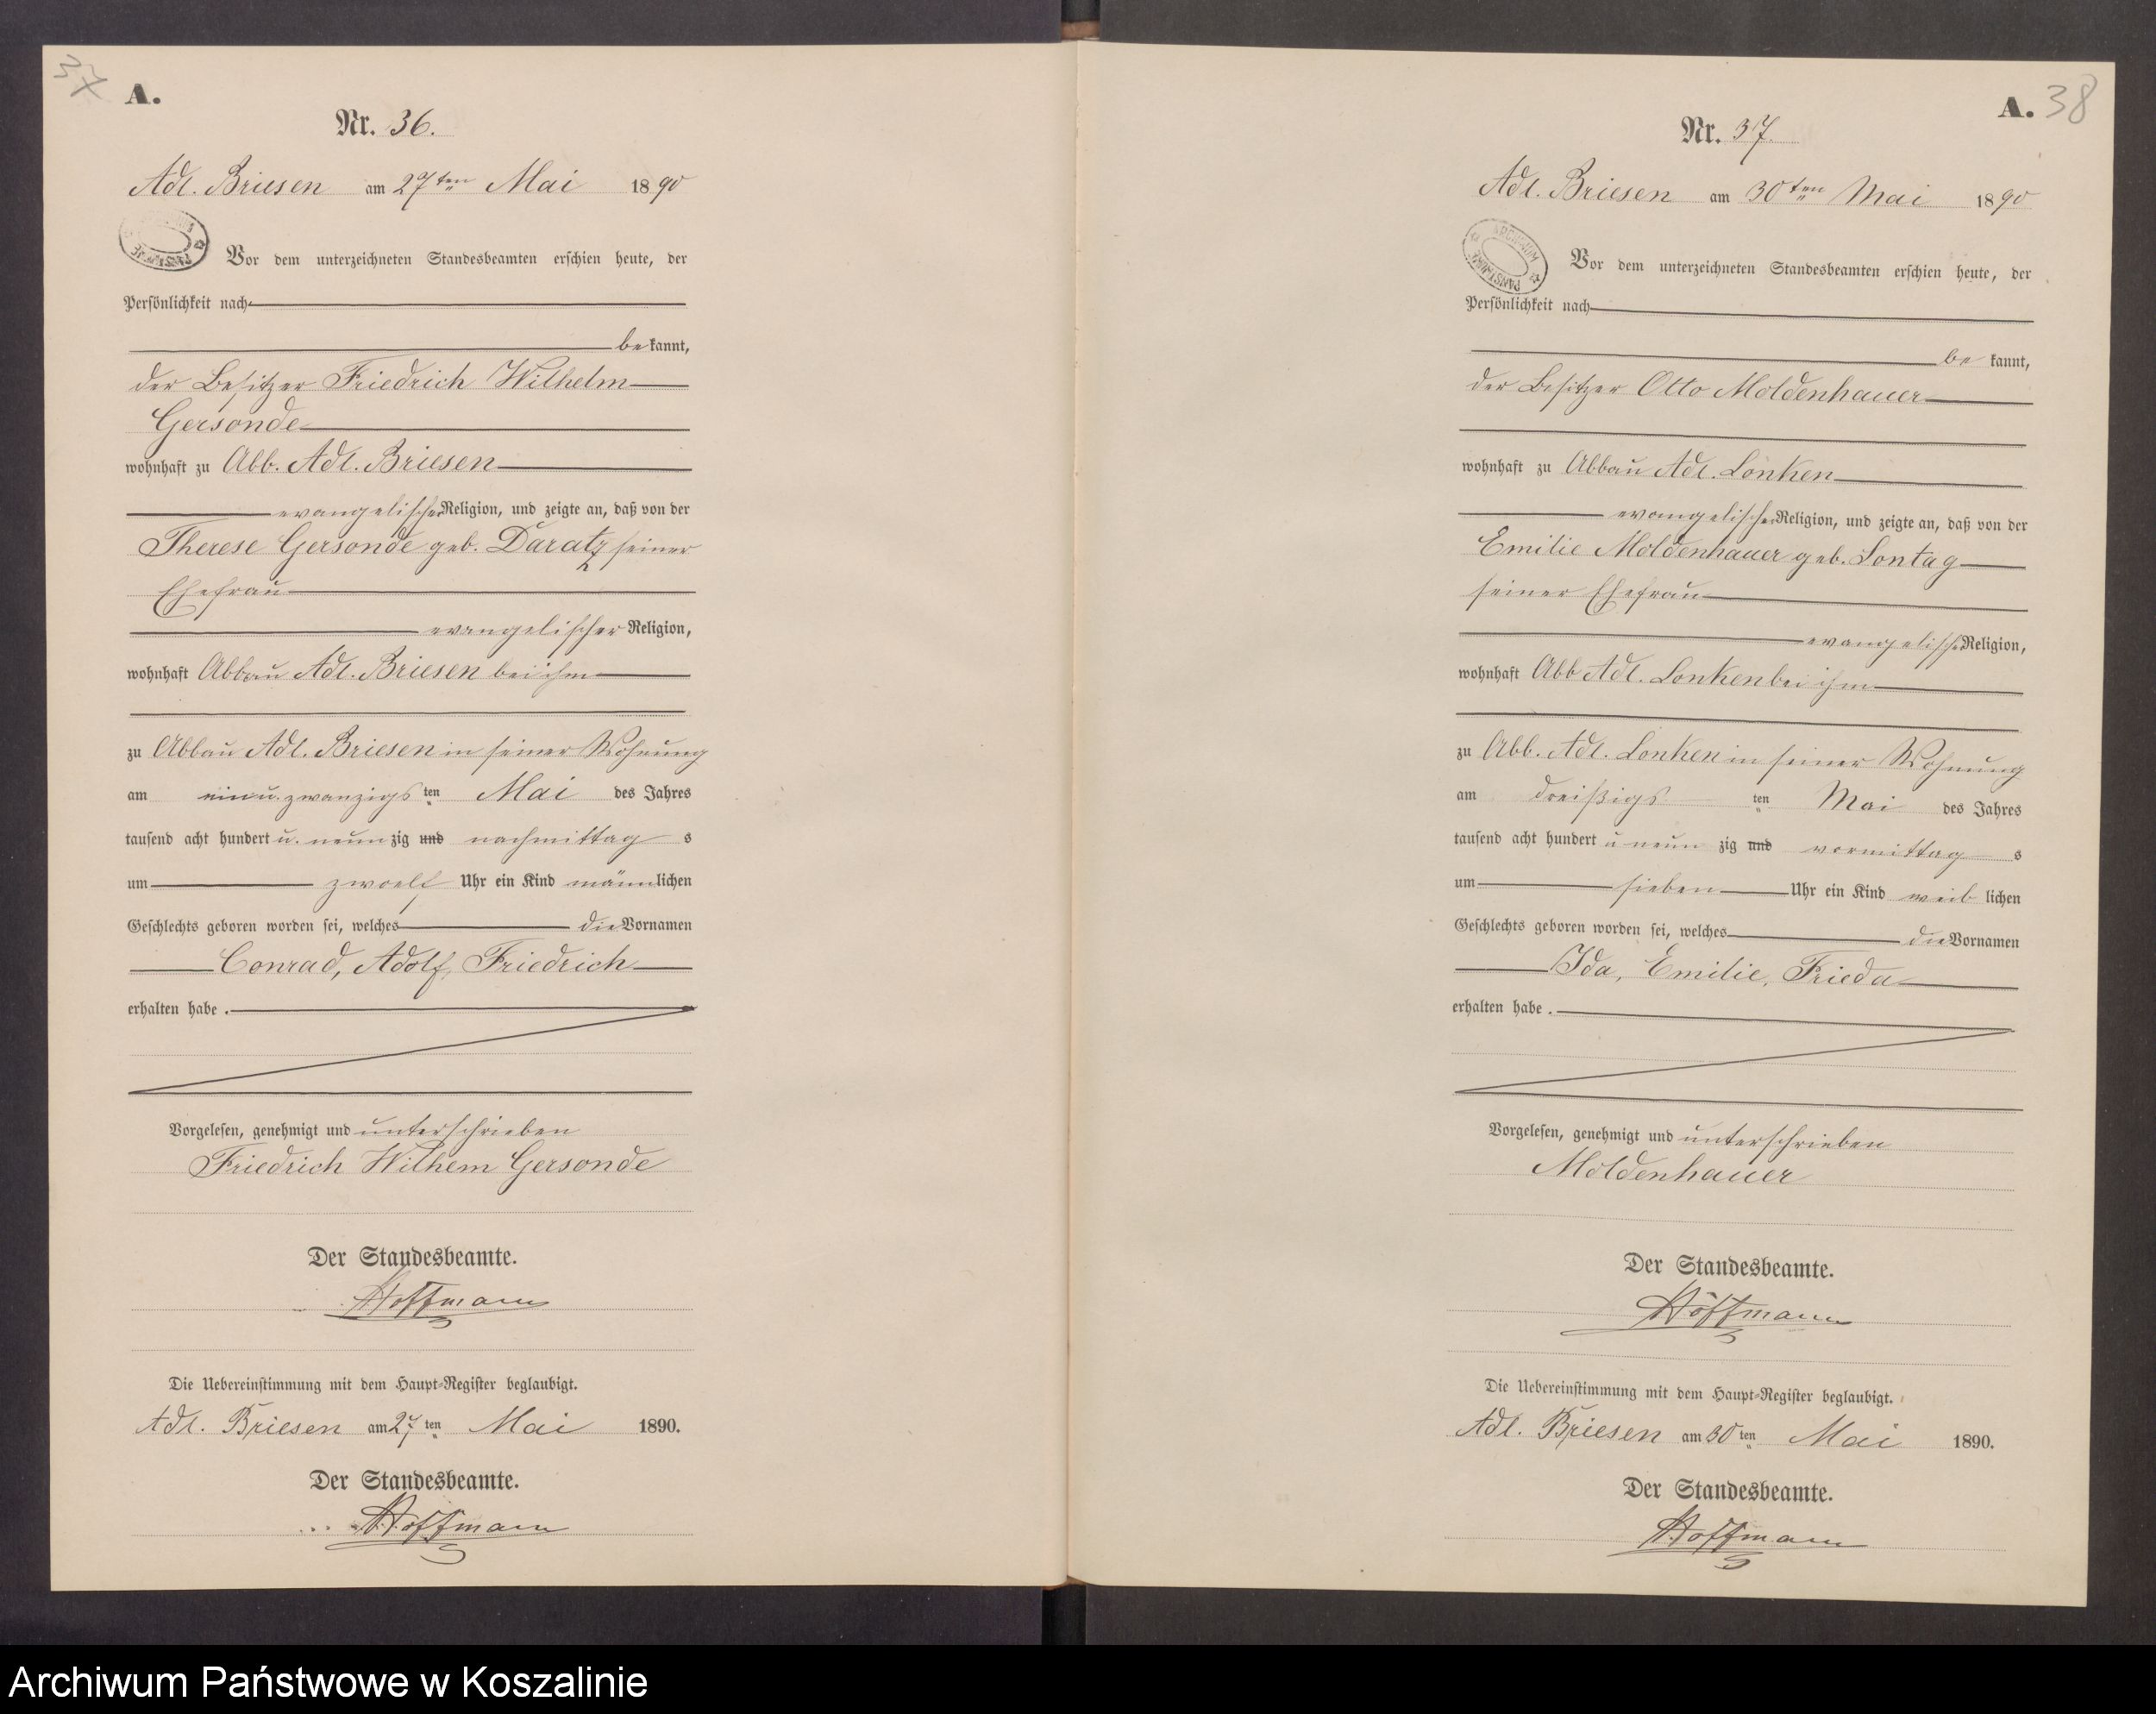 37
A.
Nr. 36.
Adl. Briesen am 27ten Mai 1890
Vor dem unterzeichneten Standesbeamten erschien heute, der
Persönlichkeit nach
bekannt,
der Besitzer Friedrich Wilhelm
Gersonde
wohnhaft zu Abb. Adl. Briesen
evangelischer Religion, und zeigte an, daß von der
Therese Gersonde geb. Daratz seiner
Ehefrau
evangelischer Religion,
wohnhaft Abbau Adl. Briesen bei ihm
zu Abbau Adl. Briesen in seiner Wohnung
am ein u. zwanzigsten Mai des Jahres
tausend acht hundert u. neunzig und nachmittags
um zwoelf Uhr ein Kind männlichen
Geschlechts geboren worden sei, welches die Vornamen
Conrad, Adolf, Friedrich
erhalten habe.
Vorgelesen, genehmigt und unterschrieben
Friedrich Wilhem Gersonde
Der Standesbeamte.
Hoffmann
Die Uebereinstimmung mit dem Haupt-Register beglaubigt.
Adl. Briesen am 27ten Mai 1890.
Der Standesbeamte.
Hoffmann
A. 38
Nr. 37.
Adl. Briesen am 30ten Mai 1890
ARCHIWUM PAŃSTWOWE
Vor dem unterzeichneten Standesbeamten erschien heute, der
Persönlichkeit nach
bekannt,
der Besitzer Otto Moldenhauer
wohnhaft zu Abbau Adl. Lonken
evangelischer Religion, und zeigte an, daß von der
Emilie Moldenhauer geb. Sontag
seiner Ehefrau
evangelischer Religion,
wohnhaft Abb Adl. Lonken bei ihm
zu Abb. Adl. Lonken in seiner Wohnung
am dreißigsten Mai des Jahres
tausend acht hundert u neunzig und vormittags
um sieben Uhr ein Kind weiblichen
Geschlechts geboren worden sei, welches die Vornamen
Ida, Emilie, Frieda
erhalten habe.
Vorgelesen, genehmigt und unterschrieben
Moldenhauer
Der Standesbeamte.
Hoffmann
Die Uebereinstimmung mit dem Haupt-Register beglaubigt.
Adl. Briesen am 30ten Mai 1890.
Der Standesbeamte.
Hoffmann
Archiwum Państwowe w Koszalinie